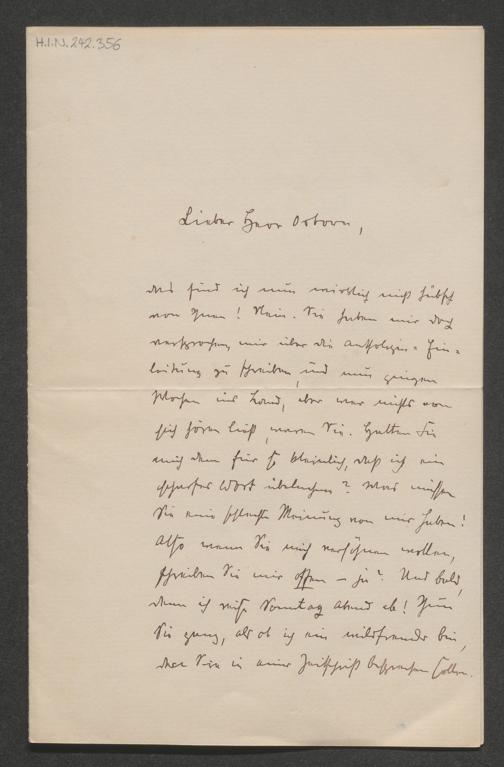 H.I.N. 242.356
Lieber Herr Osborn,
das find ich nun wirklich nicht hübsch
von Ihnen! Nein. Sie haben mir doch
versprochen, mir über die Anthologie-Ein-
leitung zu schreiben, und nun gingen
Wochen ins Land, aber wer nichts von
sich hören ließ, waren Sie. Halten Sie
mich denn für so kleinlich, daß ich ein
scharfes Wort übelnehme? Was müssen
Sie eine schlechte Meinung von mir haben!
Also wenn Sie mich versöhnen wollen,
schreiben Sie mir offen – ja? Und bald,
denn ich reise Sonntag Abend ab! Thun
Sie ganz, als ob ich ein wildfremder bin,
den Sie in einer Zeitschrift besprechen sollen.